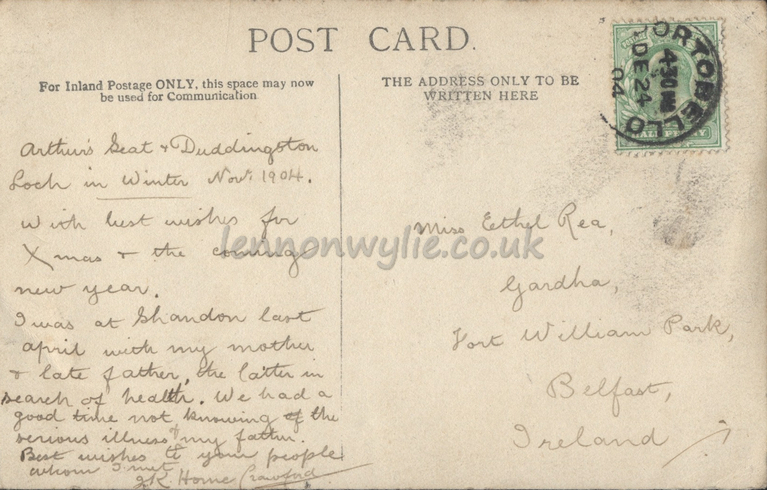 POST CARD.
For Inland Postage ONLY, this space may now
be used for Communication
THE ADDRESS ONLY TO BE
WRITTEN HERE
PORTOBELLO
4-30 PM
DE 24
04
HALFPENNY
Arthur's Seat & Duddingston
Loch in Winter Nov. 1904.
With best wishes for
Xmas & the coming
new year.
I was at Shandon last
april with my mother
& late father, the latter in
search of health. We had a
good time not knowing of the
serious illness of my father.
Best wishes to your people
whom I met
J.K. Home Crawford
Miss Ethel Rea,
Gardha,
Fort William Park,
Belfast,
Ireland
lennonwylie.co.uk